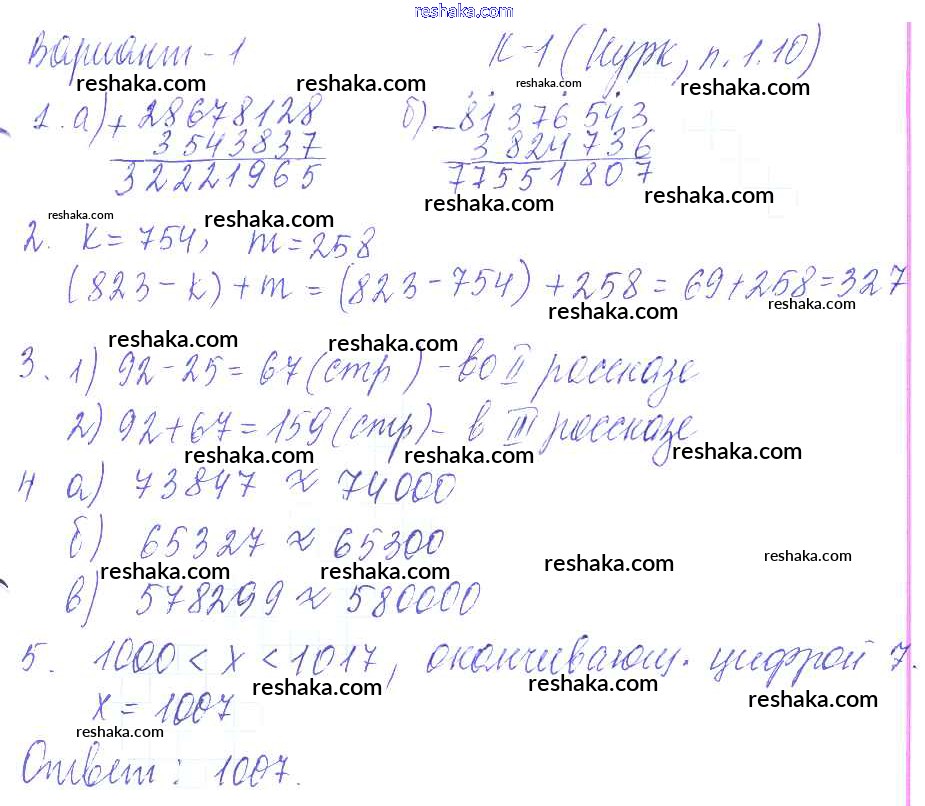 reshaka.com
Вариант-1 К-1 (Нурк, п.1.10)
reshaka.com reshaka.com reshaka.com reshaka.com
1. а) + 28678128 б) - 81376543
3543837 3824736
32221965 77551807
reshaka.com reshaka.com reshaka.com reshaka.com
2. k = 754, m = 258
(823 - k) + m = (823 - 754) + 258 = 69 + 258 = 327
reshaka.com reshaka.com
reshaka.com reshaka.com
3. 1) 92 - 25 = 67 (стр) - во II рассказе
2) 92 + 67 = 159 (стр) - в III рассказе
reshaka.com reshaka.com reshaka.com
4 а) 73847 ≈ 74000
б) 65327 ≈ 65300
reshaka.com reshaka.com reshaka.com reshaka.com
в) 578299 ≈ 580000
5. 1000 < x < 1017, оканчивающ. цифрой 7.
reshaka.com reshaka.com reshaka.com
x = 1007
reshaka.com
Ответ: 1007.